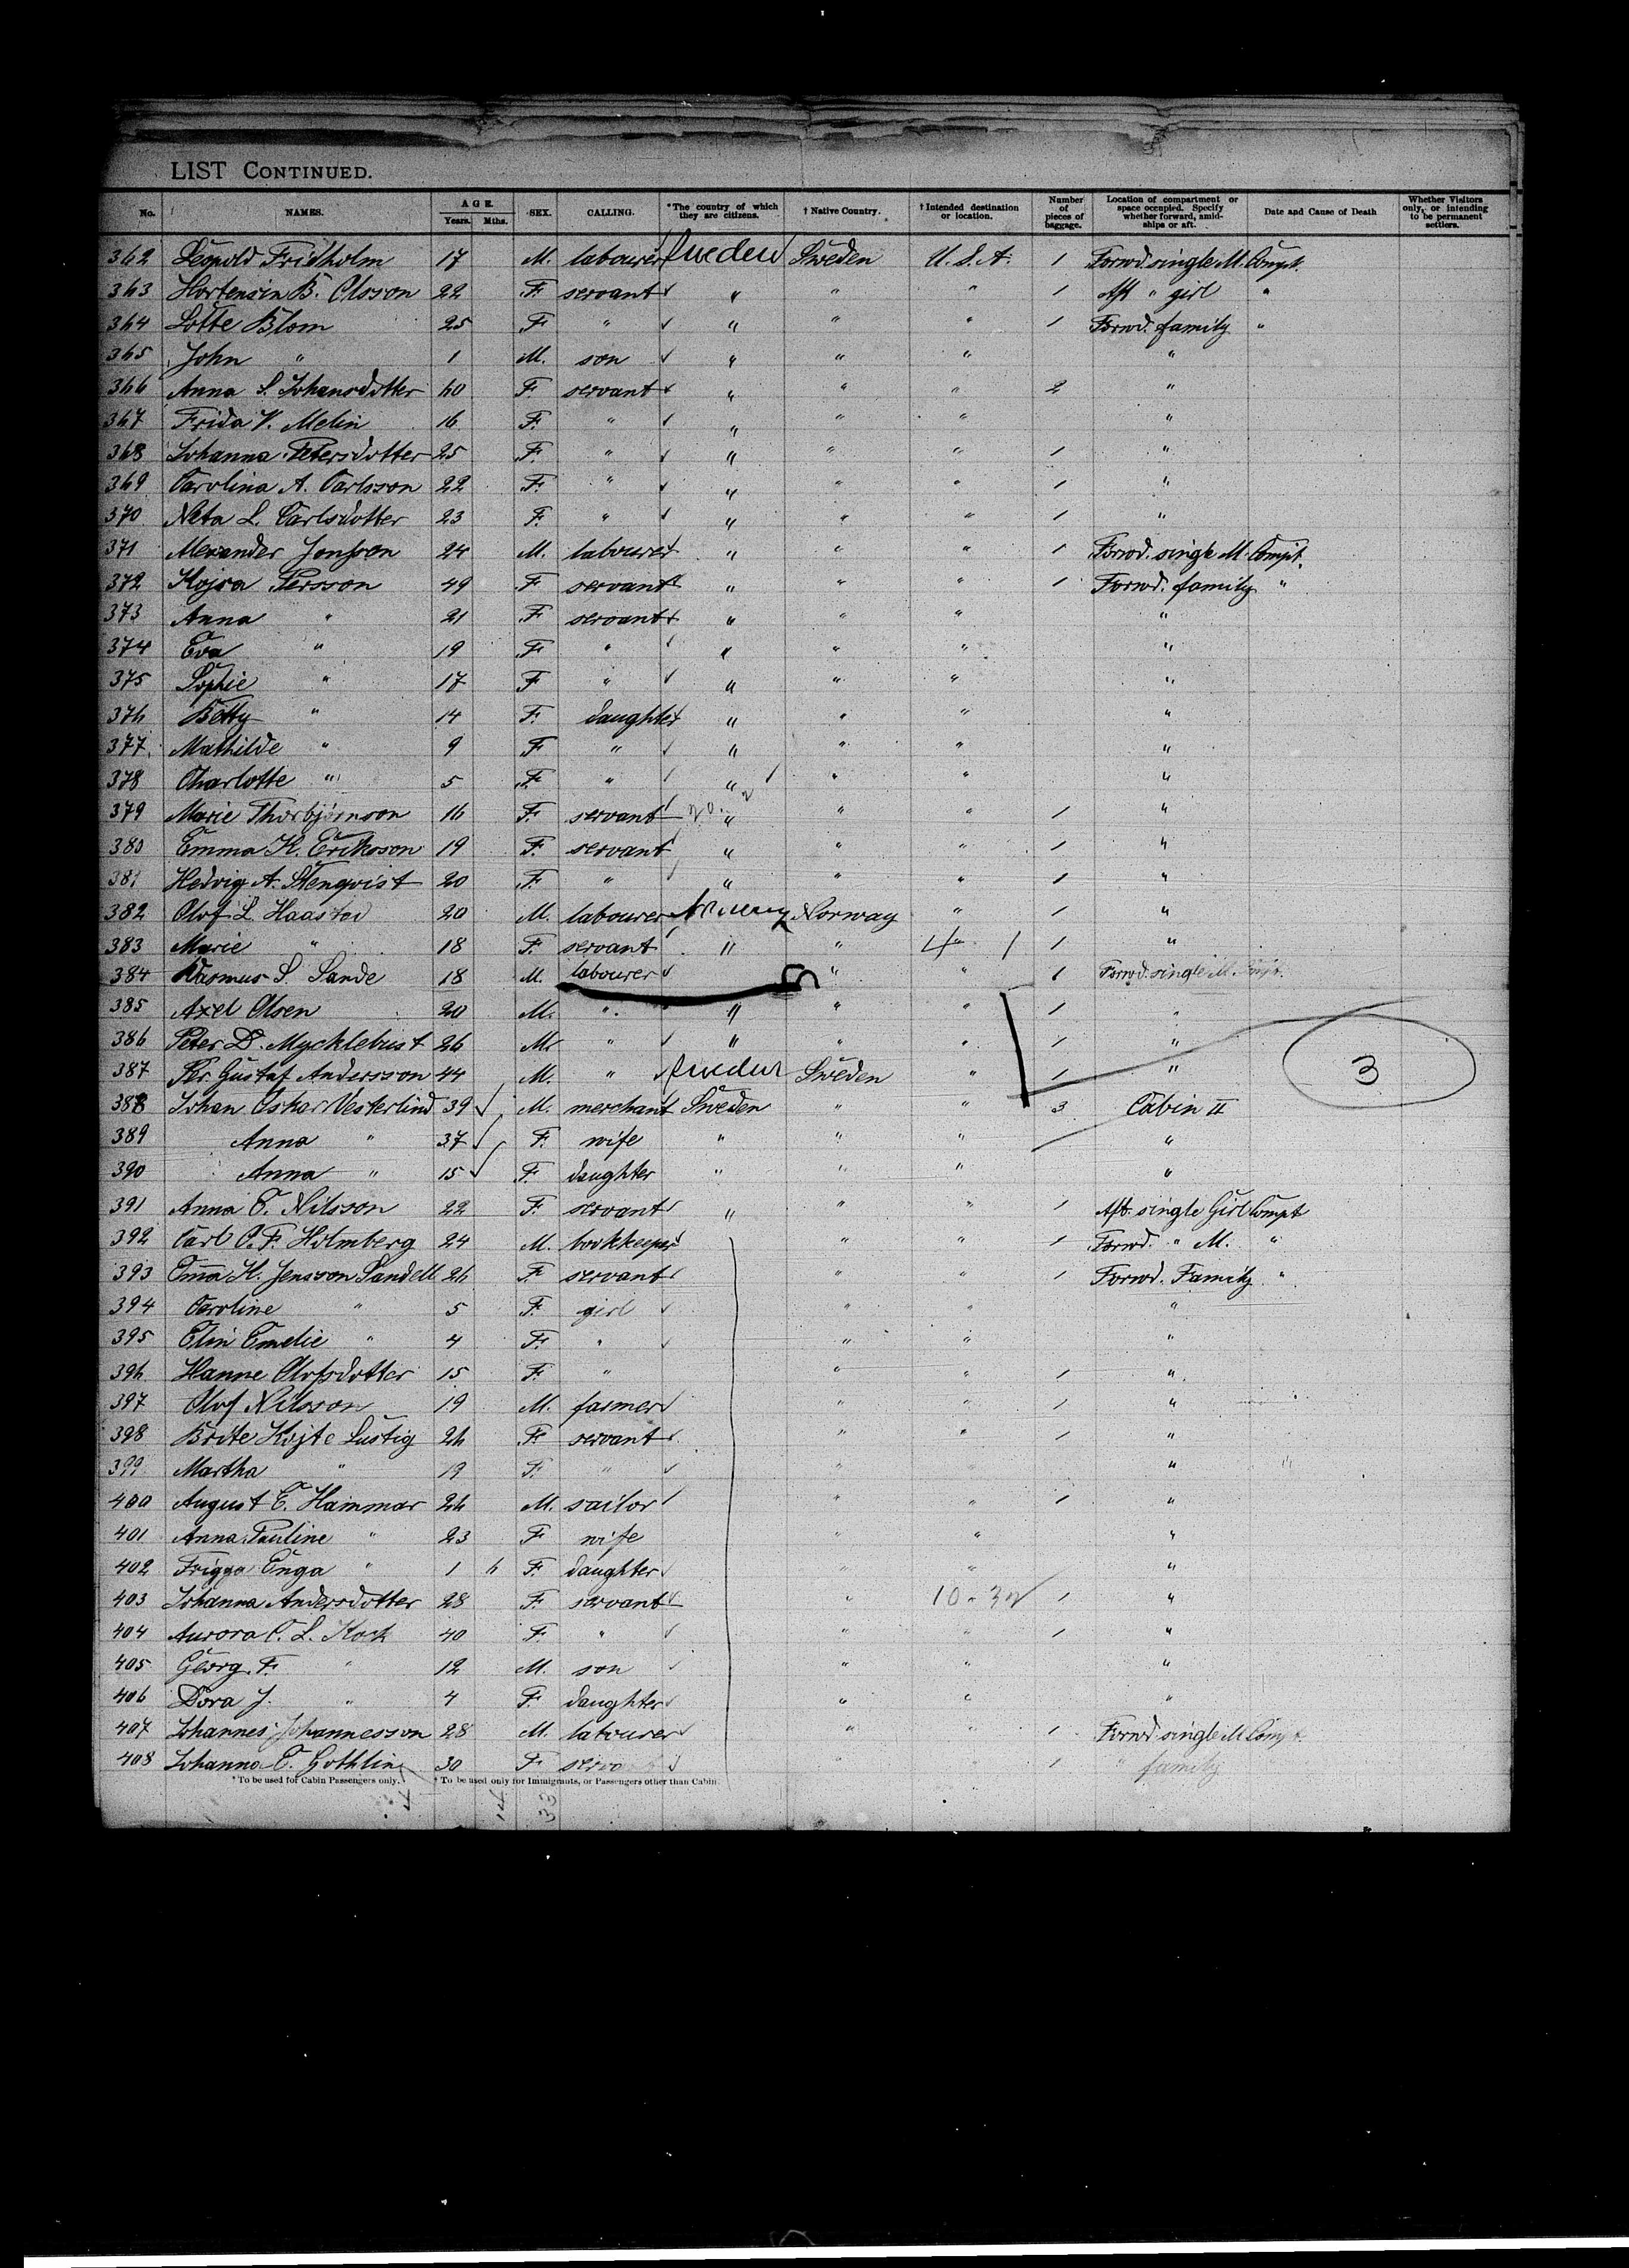 LIST CONTINUED.
No. NAMES. AGE. Years. Mths. SEX. CALLING. *The country of which they are citizens. † Native Country. † Intended destination or location. Number of pieces of baggage. Location of compartment or space occupied. Specify whether forward, amidships or aft. Date and Cause of Death Whether Visitors only, or intending to be permanent settlers.
362 Leopold Fridholm 17 M. labourer Sweden Sweden U.S.A. 1 Forwd. single M. Compt.
363 Hortensin B. Olsson 22 F. servant " " " 1 Aft " girl "
364 Lotte Blom 25 F " " " " 1 Forwd. family "
365 John " 1 M. son " " " "
366 Anna S. Johansdotter 60 F. servant " " " 2 "
367 Frida V. Melin 16 F. " " " " "
368 Johanna Petersdotter 25 F. " " " " 1 "
369 Carolina A. Carlsson 22 F. " " " " 1 "
370 Neta L. Carlsdotter 23 F. " " " " 1 "
371 Alexander Jonsson 24 M. labourer " " " 1 Forwd. single M. Compt.
372 Kojsa Persson 49 F servant " " " 1 Forwd. family "
373 Anna " 21 F servant " " " "
374 Eva " 19 F " " " " "
375 Sophie " 17 F " " " " "
376 Betty " 14 F. daughter " " " "
377 Mathilde " 9 F " " " " "
378 Charlotte " 5 F. " " " " "
379 Marie Thorbjörnson 16 F. servant " " " 1 "
380 Emma H. Eriksson 19 F. servant " " " 1 "
381 Hedvig A. Stenqvist 20 F. " " " " 1 "
382 Olof L. Haastad 20 M. labourer Norway Norway " 1 "
383 Marie " 18 F. servant " " " 1 "
384 Rasmus S. Sande 18 M. labourer " " 1 Forwd. single M. Compt.
385 Axel Olsen 20 M. " " " " 1 "
386 Peter D. Mycklebust 26 M. " " " " 1 "
387 Per Gustaf Andersson 44 M. " Sweden Sweden " 1 " 3
388 Johan Oskar Vesterlind 39 M. merchant Sweden " " 3 Cabin II
389 Anna " 37 F. wife " " " "
390 Anna " 15 F daughter " " " "
391 Anna E. Nilsson 22 F. servant " " " 1 Aft. single Girl Compt
392 Carl C. F. Holmberg 24 M. bookkeeper " " 1 Forwd. " M. "
393 Emma H. Jensson Sandell 26 F. servant " " 1 Forwd. Family "
394 Caroline " 5 F. girl " " "
395 Elin Emelie " 4 F. " " " "
396 Hanne Olofsdotter 15 F. " " " 1 "
397 Olof Nilsson 19 M. farmer " " 1 "
398 Brite Kojte Lustig 26 F servant " " 1 "
399 Martha " 19 F. " " "
400 August E. Hammar 26 M. sailor " " 1 "
401 Anna Pauline " 23 F wife " " "
402 Frigga Enga " 1 6 F. daughter " " "
403 Johanna Andersdotter 28 F. servant " 10-32 1 "
404 Aurora C. L. Kock 40 F. " " " 1 "
405 Georg. F. " 12 M. son " " "
406 Dora J. " 4 F. daughter " " "
407 Johannes Johannesson 28 M. labourer " " 1 Forwd. single M Compt.
408 Johanna E. Gothlin 30 F 1 " family
*To be used for Cabin Passengers only. † To be used only for Immigrants, or Passengers other than Cabin
14 33